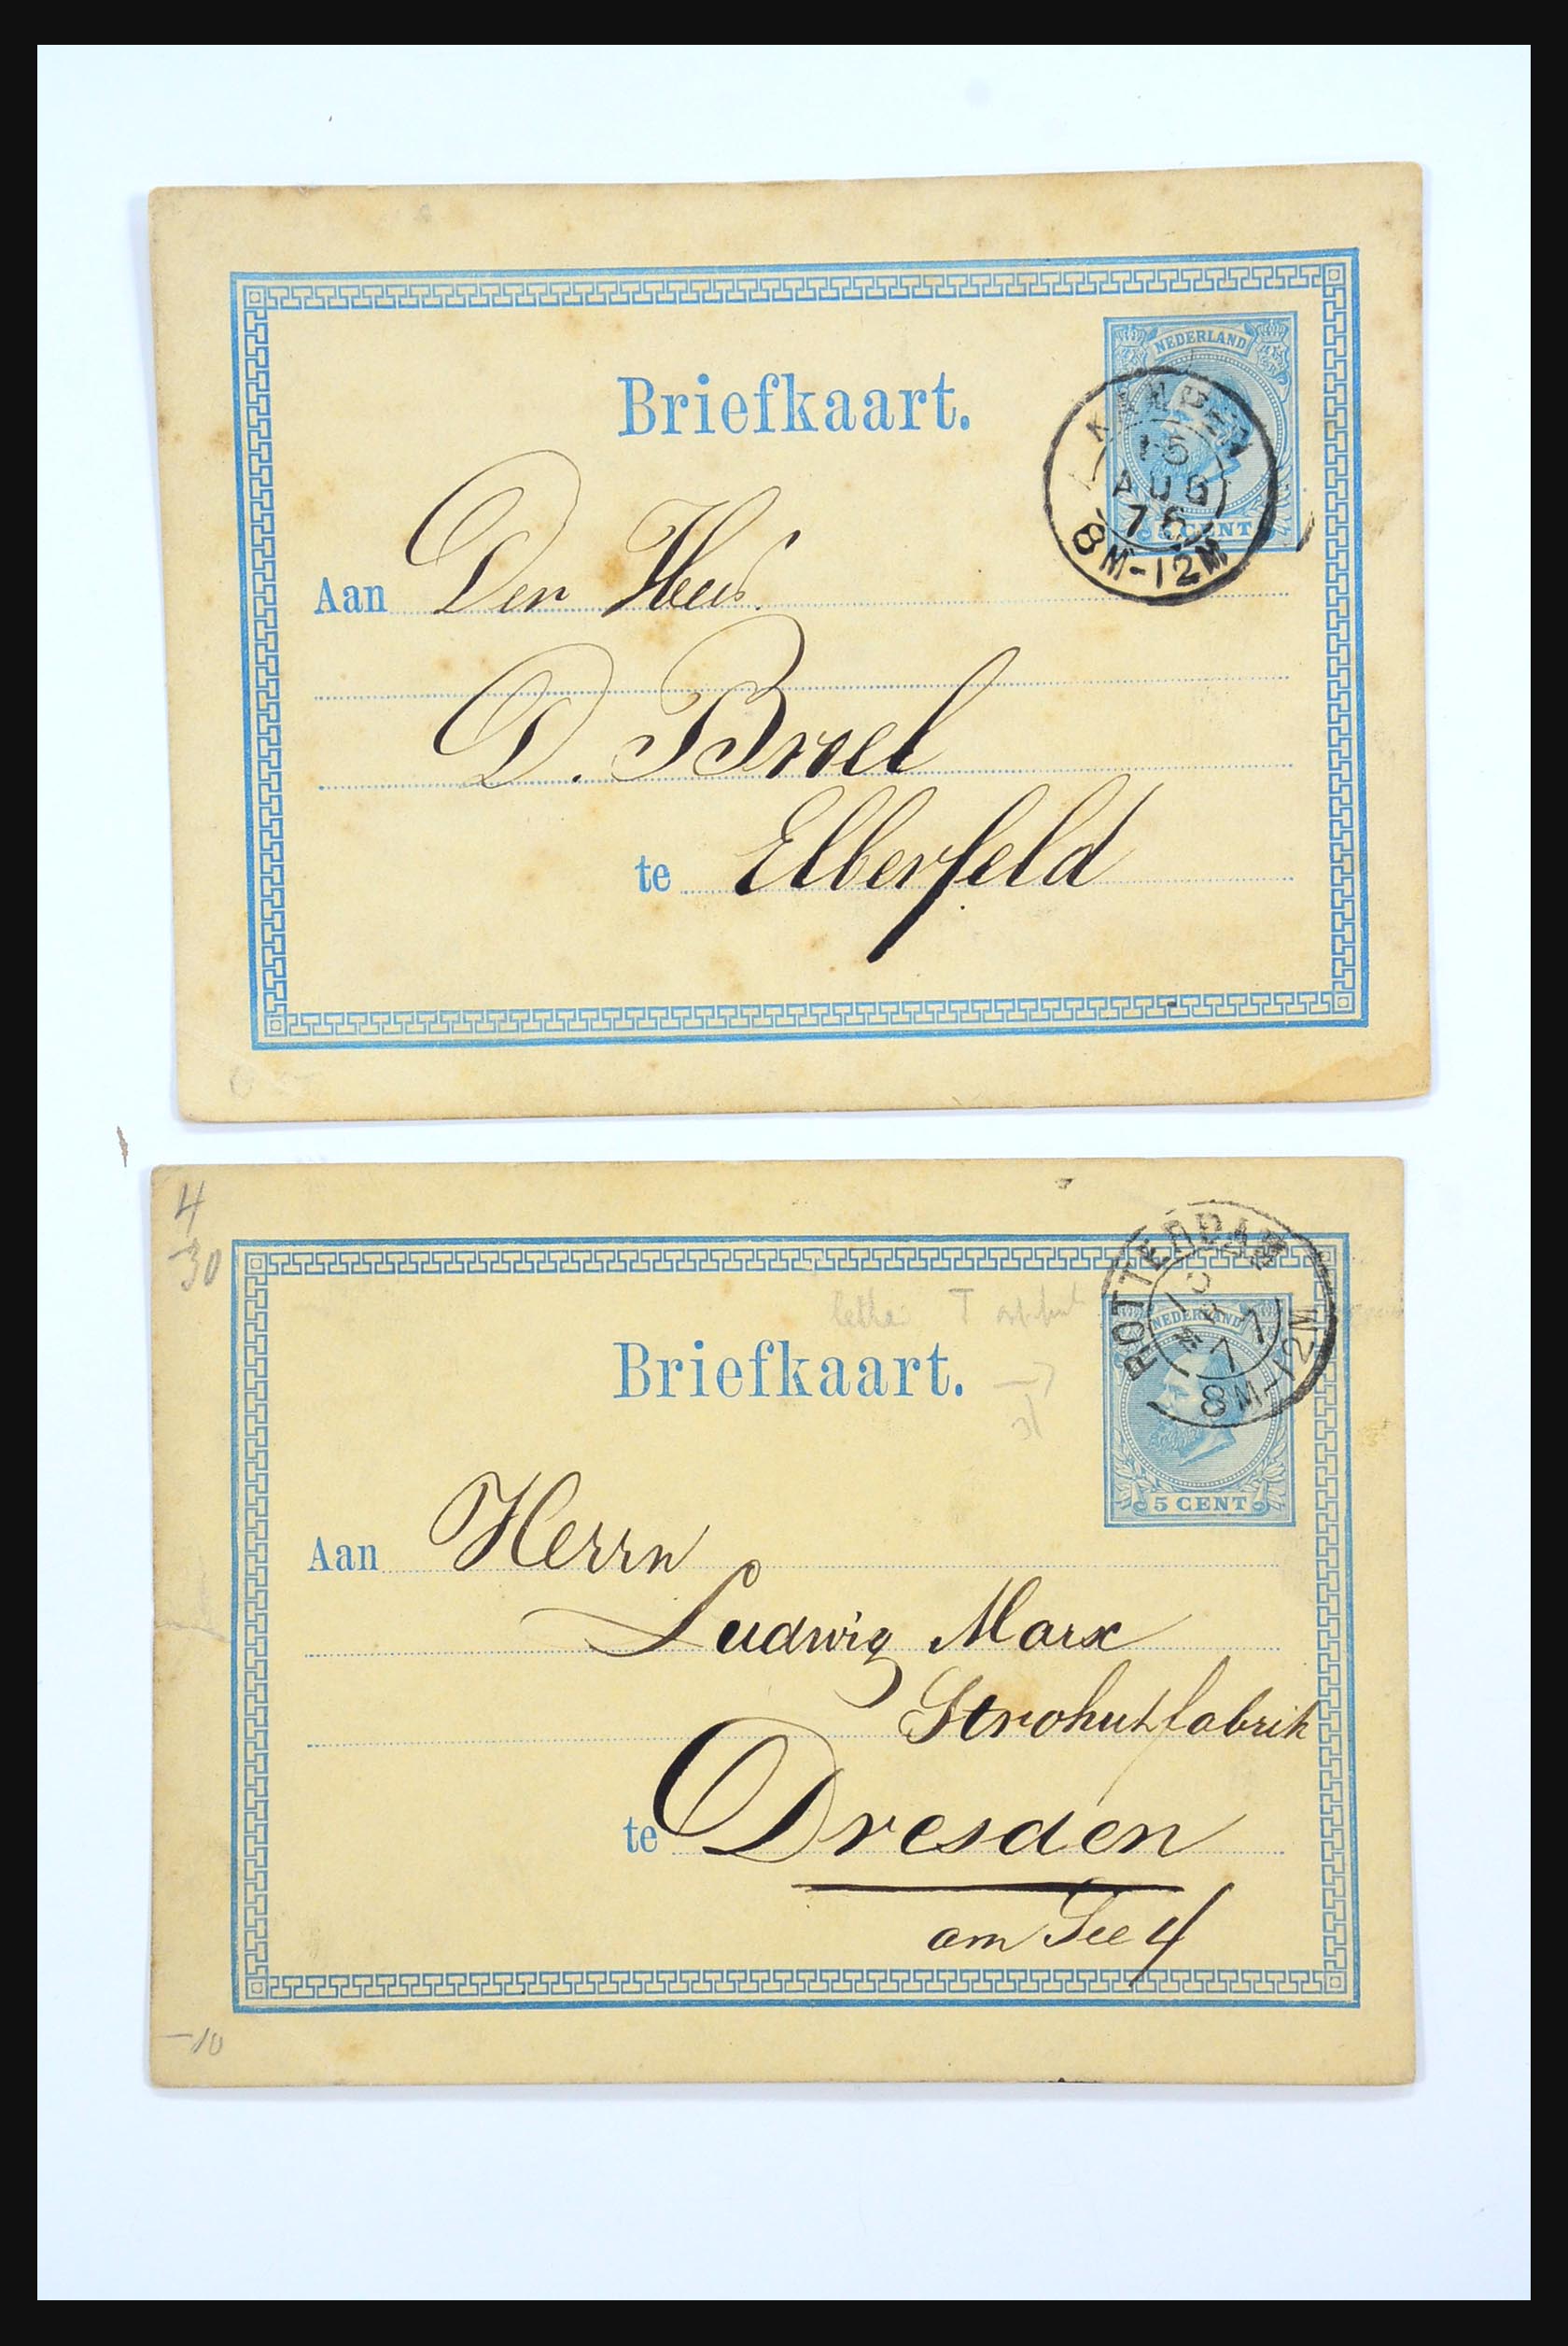 NEDERLAND
KAMPEN
15
AUG
76
8M-12M
5 CENT
Briefkaart.
Aan Den Heer
D. Broel
te Elberfeld
4
-30
ROTTERDAM
NEDERLAND
77
8M-12M
5 CENT
Briefkaart.
Aan Herrn
Ludwig Marx
Strohutfabrik
te Dresden
am See 4
-10